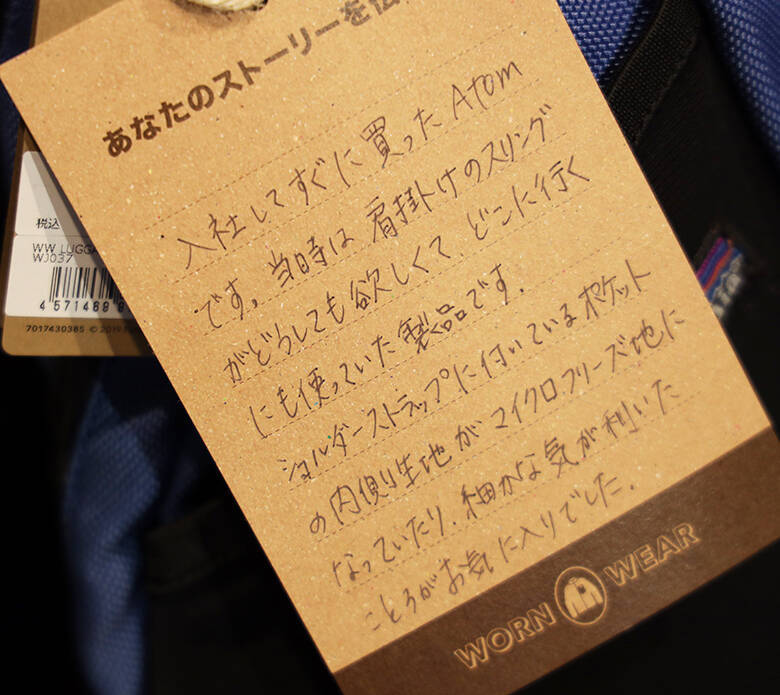 あなたのストーリーを
入社してすぐに買ったAtom
です。当時は肩掛けのスリング
がどうしても欲しくて、どこに行く
にも使っていた製品です。
ショルダーストラップに付いているポケット
の内側生地がマイクロフリーズ地に
なっていたり、細かな気が利いた
ところがお気に入りでした。
WORN WEAR
税込
WW LUGGA
WJ037
4 571469 8
7017430385 © 2019